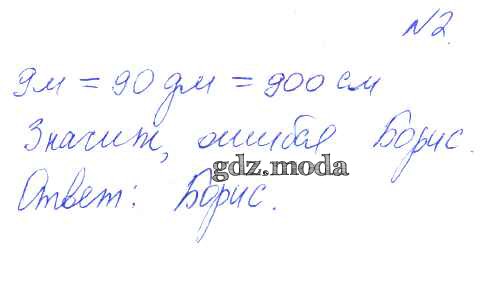 №2.
9м = 90 дм = 900 см
Значит, ошибся Борис.
gdz.moda
Ответ: Борис.